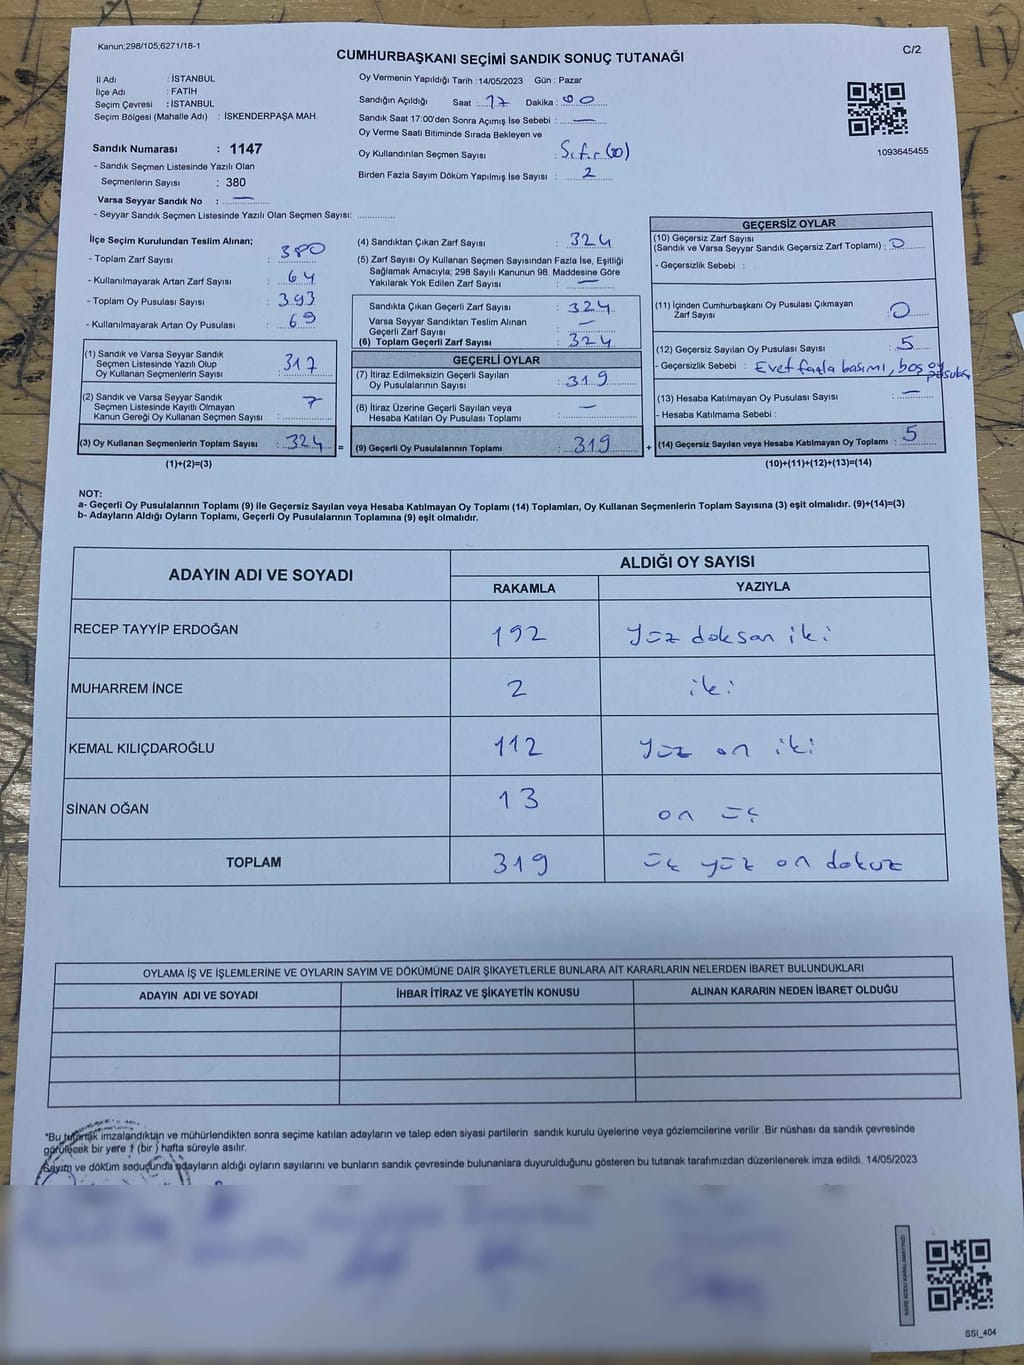 Kanun;298/105;6271/18-1
C/2
CUMHURBAŞKANI SEÇİMİ SANDIK SONUÇ TUTANAĞI
İl Adı : İSTANBUL
İlçe Adı : FATİH
Seçim Çevresi : İSTANBUL
Seçim Bölgesi (Mahalle Adı) : İSKENDERPAŞA MAH.
Sandık Numarası : 1147
- Sandık Seçmen Listesinde Yazılı Olan
Seçmenlerin Sayısı : 380
Varsa Seyyar Sandık No : —
- Seyyar Sandık Seçmen Listesinde Yazılı Olan Seçmen Sayısı: ..............
Oy Vermenin Yapıldığı Tarih : 14/05/2023 Gün : Pazar
Sandığın Açıldığı Saat : 17 Dakika : 00
Sandık Saat 17:00'den Sonra Açımış İse Sebebi : —
Oy Verme Saati Bitiminde Sırada Bekleyen ve
Oy Kullandırılan Seçmen Sayısı : Sıfır (00)
Birden Fazla Sayım Döküm Yapılmış İse Sayısı : 2
1093645455
İlçe Seçim Kurulundan Teslim Alınan;
- Toplam Zarf Sayısı : 380
- Kullanılmayarak Artan Zarf Sayısı : 64
- Toplam Oy Pusulası Sayısı : 393
- Kullanılmayarak Artan Oy Pusulası : 69
(1) Sandık ve Varsa Seyyar Sandık
Seçmen Listesinde Yazılı Olup
Oy Kullanan Seçmenlerin Sayısı : 317
(2) Sandık ve Varsa Seyyar Sandık
Seçmen Listesinde Kayıtlı Olmayan
Kanun Gereği Oy Kullanan Seçmen Sayısı : 7
(3) Oy Kullanan Seçmenlerin Toplam Sayısı : 324
(1)+(2)=(3)
=
(4) Sandıktan Çıkan Zarf Sayısı : 324
(5) Zarf Sayısı Oy Kullanan Seçmen Sayısından Fazla İse, Eşitliği
Sağlamak Amacıyla; 298 Sayılı Kanunun 98. Maddesine Göre
Yakılarak Yok Edilen Zarf Sayısı : —
Sandıkta Çıkan Geçerli Zarf Sayısı : 324
Varsa Seyyar Sandıktan Teslim Alınan
Geçerli Zarf Sayısı : —
(6) Toplam Geçerli Zarf Sayısı : 324
GEÇERLİ OYLAR
(7) İtiraz Edilmeksizin Geçerli Sayılan
Oy Pusulalarının Sayısı : 319
(8) İtiraz Üzerine Geçerli Sayılan veya
Hesaba Katılan Oy Pusulası Toplamı : —
(9) Geçerli Oy Pusulalarının Toplamı : 319
+
GEÇERSİZ OYLAR
(10) Geçersiz Zarf Sayısı
(Sandık ve Varsa Seyyar Sandık Geçersiz Zarf Toplamı) : 0
- Geçersizlik Sebebi :
(11) İçinden Cumhurbaşkanı Oy Pusulası Çıkmayan
Zarf Sayısı : 0
(12) Geçersiz Sayılan Oy Pusulası Sayısı : 5
- Geçersizlik Sebebi : Evet fazla basımı, boş oy pusulası
(13) Hesaba Katılmayan Oy Pusulası Sayısı : —
- Hesaba Katılmama Sebebi :
(14) Geçersiz Sayılan veya Hesaba Katılmayan Oy Toplamı : 5
(10)+(11)+(12)+(13)=(14)
NOT:
a- Geçerli Oy Pusulalarının Toplamı (9) ile Geçersiz Sayılan veya Hesaba Katılmayan Oy Toplamı (14) Toplamları, Oy Kullanan Seçmenlerin Toplam Sayısına (3) eşit olmalıdır. (9)+(14)=(3)
b- Adayların Aldığı Oyların Toplamı, Geçerli Oy Pusulalarının Toplamına (9) eşit olmalıdır.
ADAYIN ADI VE SOYADI
ALDIĞI OY SAYISI
RAKAMLA YAZIYLA
RECEP TAYYİP ERDOĞAN 192 Yüz doksan iki
MUHARREM İNCE 2 iki
KEMAL KILIÇDAROĞLU 112 Yüz on iki
SİNAN OĞAN 13 on üç
TOPLAM 319 üç yüz on dokuz
OYLAMA İŞ VE İŞLEMLERİNE VE OYLARIN SAYIM VE DÖKÜMÜNE DAİR ŞİKAYETLERLE BUNLARA AİT KARARLARIN NELERDEN İBARET BULUNDUKLARI
ADAYIN ADI VE SOYADI İHBAR İTİRAZ VE ŞİKAYETİN KONUSU ALINAN KARARIN NEDEN İBARET OLDUĞU
"Bu tutanak imzalandıktan ve mühürlendikten sonra seçime katılan adayların ve talep eden siyasi partilerin sandık kurulu üyelerine veya gözlemcilerine verilir .Bir nüshası da sandık çevresinde
görülecek bir yere 1 (bir ) hafta süreyle asılır.
Sayım ve döküm sonucunda adayların aldığı oyların sayılarını ve bunların sandık çevresinde bulunanlara duyurulduğunu gösteren bu tutanak tarafımızdan düzenlenerek imza edildi. 14/05/2023
KARE KODU KARALAMAYINIZ!
SSI_404